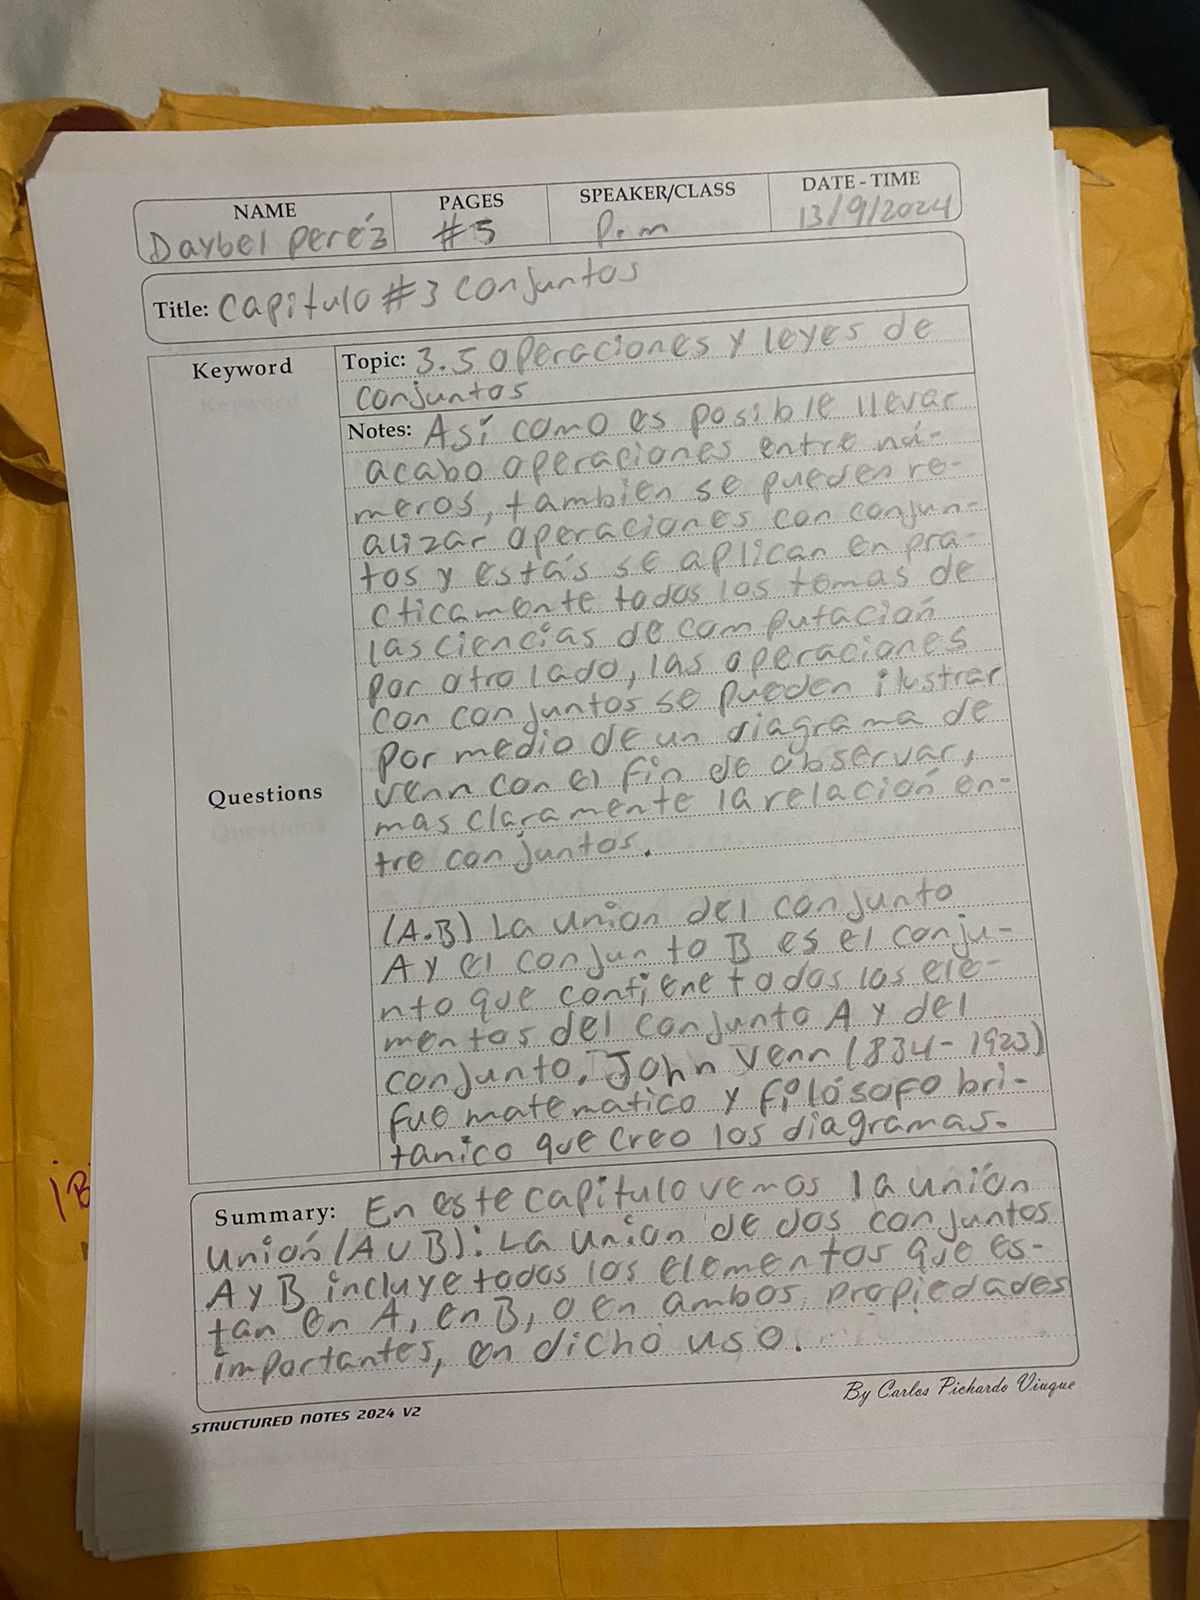 NAME PAGES SPEAKER/CLASS DATE - TIME
Daybel Peréz #5 P.m 13/9/2024
Title: Capitulo #3 Conjuntos
Keyword
Topic: 3.5 operaciones y leyes de
conjuntos
Notes: Así como es posible llevar
acabo operaciones entre nú-
meros, tambien se pueden re-
alizar operaciones con conjun-
tos y estás se aplican en pra-
cticamente todos los temas de
las ciencias de computación
por otro lado, las operaciones
con conjuntos se pueden ilustrar
por medio de un diagrama de
venn con el fin de observar,
mas claramente la relación en-
tre conjuntos.
Questions
(A.B) La union del conjunto
A y el conjunto B es el conju-
nto que contiene todos los ele-
mentos del conjunto A y del
conjunto. John Venn (834-1923)
fue matematico y filósofo bri-
tanico que creo los diagramas.
Summary: En este capitulo vemos la unión
unión (A U B): La union de dos conjuntos
A y B incluye todos los elementos que es-
tan en A, en B, o en ambos. propiedades
importantes, en dicho uso.
STRUCTURED NOTES 2024 V2
By Carlos Pichardo Viuque